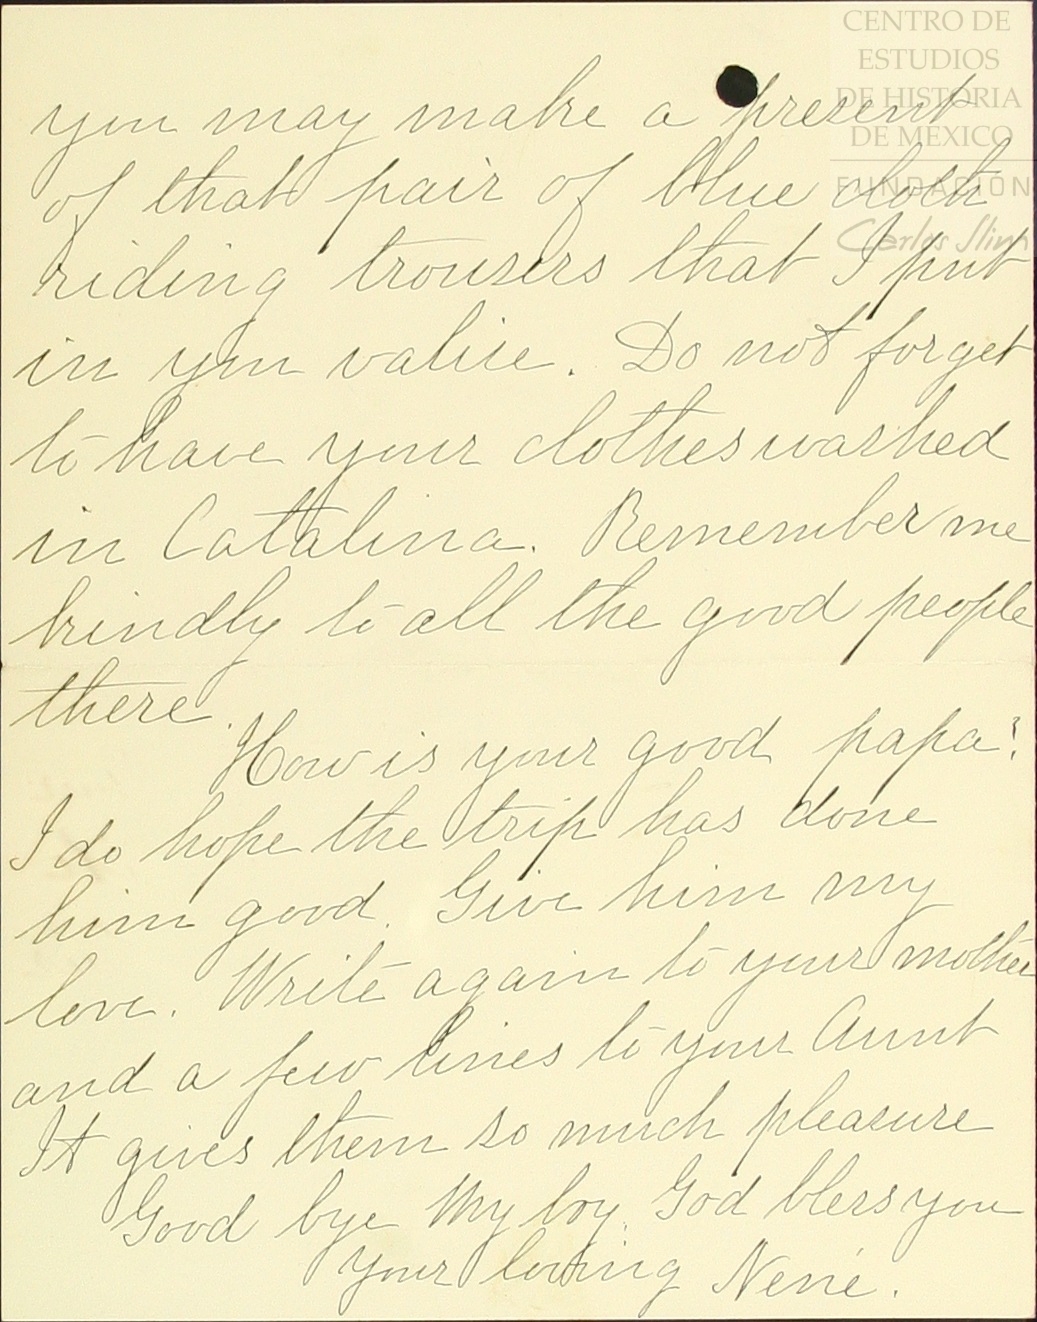 CENTRO DE
ESTUDIOS
DE HISTORIA
DE MEXICO
FUNDACIÓN
Carlos Slim
you may make a present
of that pair of blue cloth
riding trousers that I put
in you valise. Do not forget
to have your clothes washed
in Catalina. Remember me
kindly to all the good people
there.
How is your good papa?
I do hope the trip has done
him good. Give him my
love. Write again to your mother
and a few lines to your Aunt
It gives them so much pleasure
Good bye My boy. God bless you
your loving Nené.